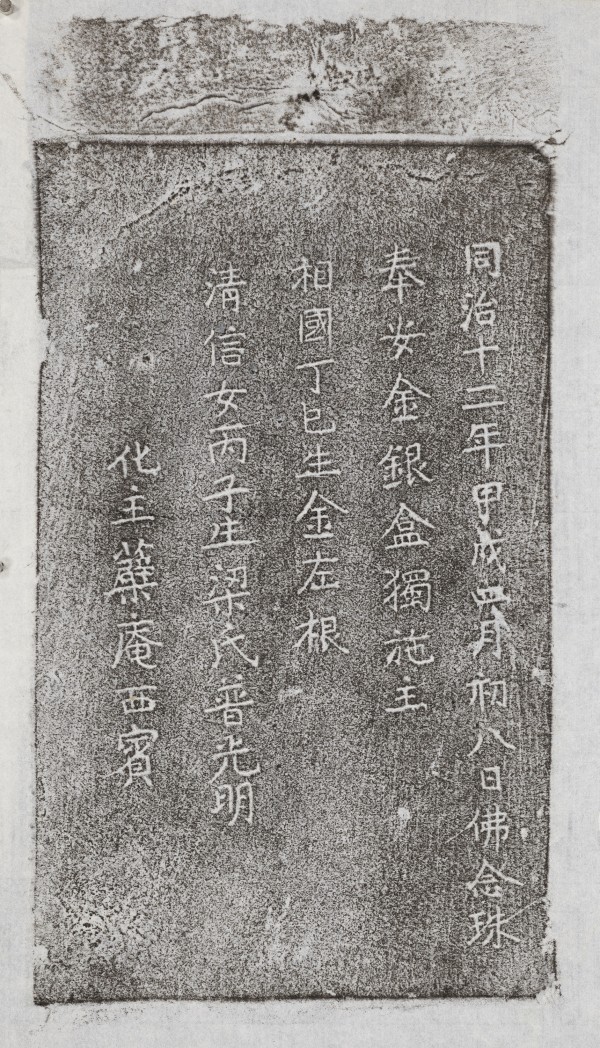 同治十二年甲戌四月初八日佛念珠
奉安金銀盒獨施主
相國丁巳生金左根
清信女丙子生梁氏普光明
化主蘗庵西賓